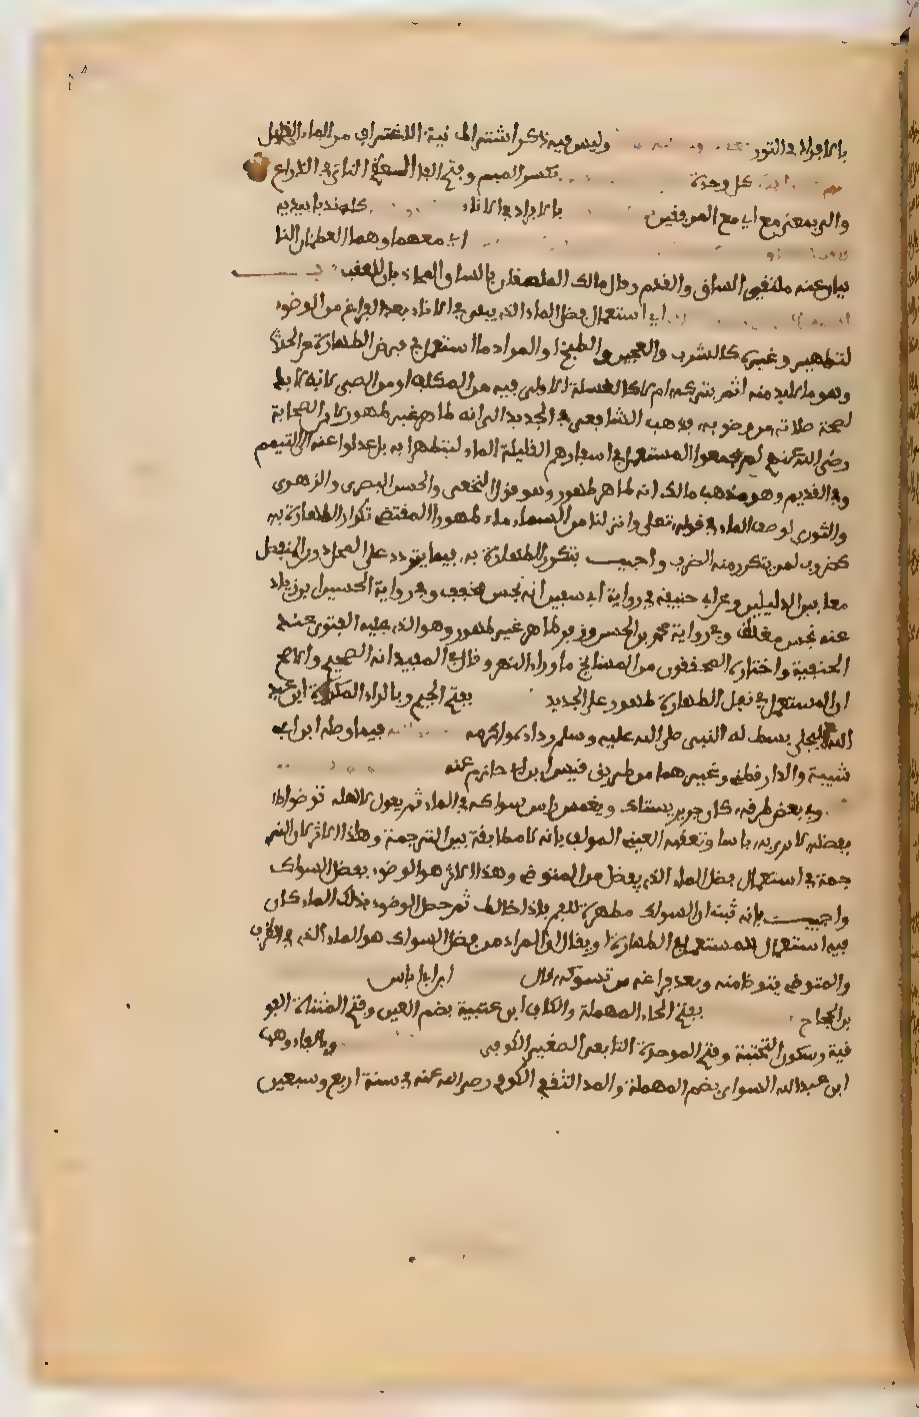 بالافراد في التور وليس فيه ذكر اشتراط نية الاغتراف من الماء القليل
كل وجده بكسر الميم وفتح الفاء العظم الناتئ في الذراع
والى بمعنى مع اي مع المرفقين بالافراد في الاناء كل منهما بيديه
اي معهما وهما العظمان النا
تيان عند ملتقى الساق والقدم وقال مالك الملصقان بالساق المحاذيان للعقب باب
استعمال فضل الماء الذي يبقى في الاناء بعد الفراغ من الوضوء
لتطهير وغيره كالشرب والعجين والطبخ او المراد ما استعمل في فرض الطهارة من الحدث
وهو ما لا بد منه اثم بتركه ام لا كالغسلة الاولى فيه من المكلف او من الصبي لانه لا بد
لصحة صلاته من وضوء فذهب الشافعي في الجديد الى انه طاهر غير طهور لان الصحابة
رضي الله عنهم لم يجمعوا المستعمل في اسفارهم القليلة الماء ليتطهروا به بل عدلوا عنه الى التيمم
وفي القديم وهو مذهب مالك انه طاهر طهور وهو قول النخعي والحسن البصري والزهري
والثوري لوصف الماء في قوله تعلى وانزلنا من السماء ماء طهورا المقتضي تكرار الطهارة به
كضروب لمن يتكرر منه الضرب واجيب بتكرر الطهارة به فيما يتردد على المحل دون المنفصل
جمعا بين الدليلين وعن ابي حنيفة في رواية ابي يوسف انه نجس مخفف وفي رواية الحسن بن زياد
عنه نجس مغلظ وفي رواية محمد بن الحسن وزفر طاهر غير طهور وهو الذي عليه الفتوى عند
الحنفية واختاره المحققون من مشايخ ما وراء النهر وقال في المفيد انه الصحيح والاصح
ان المستعمل في نفل الطهارة طهور على الجديد بفتح الجيم وبالراء المكررة ابن عبد
الله البجلي بسط له النبي صلى الله عليه وسلم رداءه واكرمه فيما وصله ابن ابي
شيبة والدارقطني وغيرهما من طريق قيس بن ابي حازم عنه
وفي بعض طرقه كان جرير يستاك ويغمس راس سواكه في الماء ثم يقول لاهله توضؤا
بفضله لا يرى به باسا وتعقبه العيني المولف بانه لا مطابقة بين الترجمة وهذا الاثر لان التر
جمة في استعمال فضل الماء الذي يفضل من المتوضي وهذا الاثر هو الوضوء بفضل السواك
واجيب بانه ثبت ان السواك مطهرة للفم فاذا خالط ثم حصل الوضوء بذلك الماء كان
فيه استعمال للمستعمل في الطهارة او يقال ان المراد من فضل السواك هو الماء الذي في الظرف
والمتوضي يتوضا منه وبعد فراغه من تسوكه قال ابن ابي اياس
بن الحجاج بفتح الحاء المهملة والكاف ابن عتيبة بضم العين وفتح المثناة الفو
قية وسكون التحتية وفتح الموحدة التابعي الصغير الكوفي وبالفاء وهب
ابن عبد الله السواي بضم المهملة والمد الثقفي الكوفي رضي الله عنه في سنة اربع وسبعين